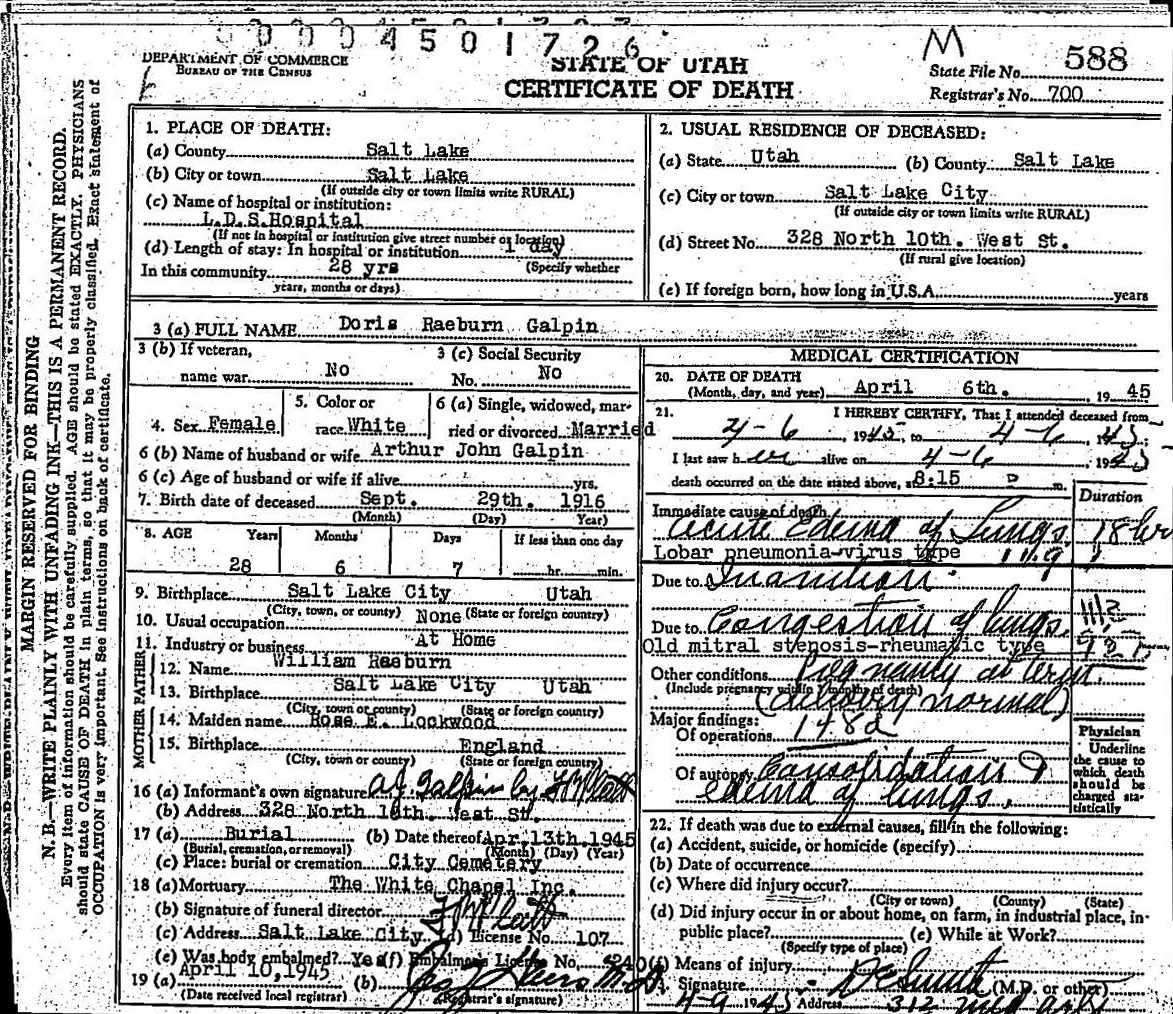 0004501726
DEPARTMENT OF COMMERCE
BUREAU OF THE CENSUS
STATE OF UTAH
CERTIFICATE OF DEATH
M
State File No. 588
Registrar's No. 700
MARGIN RESERVED FOR BINDING
N. B.—WRITE PLAINLY WITH UNFADING INK—THIS IS A PERMANENT RECORD.
Every item of information should be carefully supplied. AGE should be stated EXACTLY. PHYSICIANS
should state CAUSE OF DEATH in plain terms, so that it may be properly classified. Exact statement of
OCCUPATION is very important. See instructions on back of certificate.
1. PLACE OF DEATH:
(a) County Salt Lake
(b) City or town Salt Lake
(If outside city or town limits write RURAL)
(c) Name of hospital or institution:
L.D.S.Hospital
(If not in hospital or institution give street number or location)
(d) Length of stay: In hospital or institution 1 day
(Specify whether
In this community 28 yrs
years, months or days)
2. USUAL RESIDENCE OF DECEASED:
(a) State Utah (b) County Salt Lake
(c) City or town Salt Lake City
(If outside city or town limits write RURAL)
(d) Street No. 328 North 10th. West St.
(If rural give location)
(e) If foreign born, how long in U.S.A. years
3 (a) FULL NAME Doris Raeburn Galpin
3 (b) If veteran,
name war No
3 (c) Social Security
No. No
4. Sex Female
5. Color or
race White
6 (a) Single, widowed, mar-
ried or divorced Married
6 (b) Name of husband or wife Arthur John Galpin
6 (c) Age of husband or wife if alive yrs.
7. Birth date of deceased Sept. 29th. 1916
(Month) (Day) Year)
8. AGE Years Months Days If less than one day
28 6 7 hr. min.
9. Birthplace Salt Lake City Utah
(City, town, or county) (State or foreign country)
10. Usual occupation None
11. Industry or business At Home
FATHER
12. Name William Raeburn
13. Birthplace Salt Lake City Utah
(City, town or county) (State or foreign country)
MOTHER
14. Maiden name Rose E. Lockwood
15. Birthplace England
(City, town, or county) (State or foreign country)
16 (a) Informant's own signature A J Galpin by
(b) Address 328 North 10th. West St.
17 (a) Burial (b) Date thereof Apr. 13th. 1945
(Burial, cremation, or removal) (Month) (Day) (Year)
(c) Place: burial or cremation City Cemetery
18 (a) Mortuary The White Chapel Inc.
(b) Signature of funeral director
(c) Address Salt Lake City (d) License No. 107
(e) Was body embalmed? Yes (f) Embalmer's License No. 240
19 (a) April 10,1945 (b)
(Date received local registrar) (Registrar's signature)
MEDICAL CERTIFICATION
20. DATE OF DEATH
(Month, day, and year) April 6th. 19 45
21. I HEREBY CERTIFY, That I attended deceased from
4-6, 1945, to 4-6, 1945
I last saw her alive on 4-6, 1945
death occurred on the date stated above, at 8:15 P m.
Duration
Immediate cause of death
Acute Edema of Lungs 18 hr
Lobar pneumonia-virus type
Due to Inanition
Due to Congestion of lungs.
Old mitral stenosis-rheumatic type
Other conditions Pregnancy at term.
(Include pregnancy within 3 months of death)
(delivery normal)
Major findings:
Of operations 148a
Of autopsy Consolidation &
edema of lungs.
Physician
Underline
the cause to
which death
should be
charged sta-
tistically
22. If death was due to external causes, fill in the following:
(a) Accident, suicide, or homicide (specify)
(b) Date of occurrence
(c) Where did injury occur?
(City or town) (County) (State)
(d) Did injury occur in or about home, on farm, in industrial place, in-
public place? (e) While at Work?
(Specify type of place)
(f) Means of injury
Signature (M.D. or other)
4-9 1945 Address 312 Med